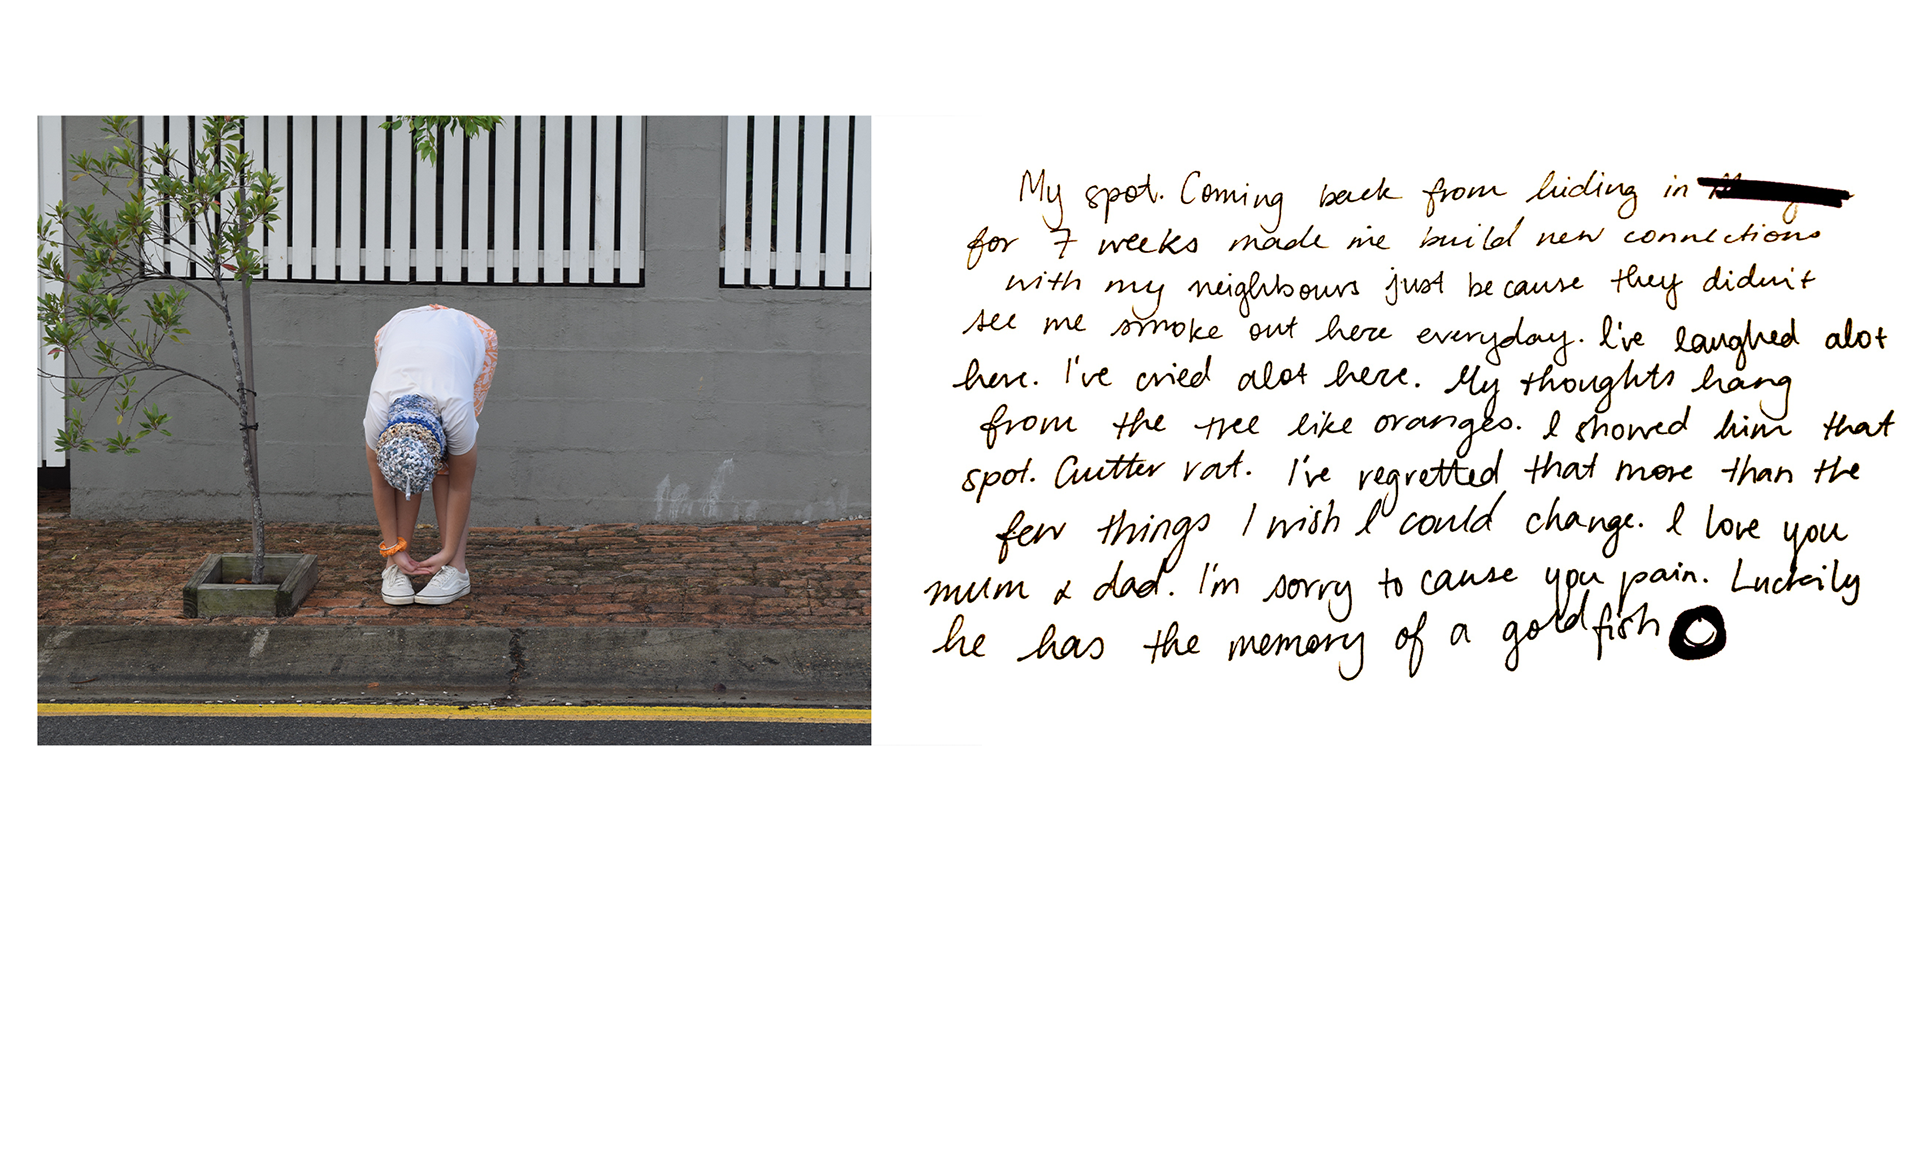 My spot. Coming back from hiding in
for 7 weeks made me build new connections
with my neighbours just because they didn't
see me smoke out here everyday. I've laughed alot
here. I've cried alot here. My thoughts hang
from the tree like oranges. I showed him that
spot. Gutter rat. I've regretted that more than the
few things I wish I could change. I love you
mum & dad. I'm sorry to cause you pain. Luckily
he has the memory of a goldfish